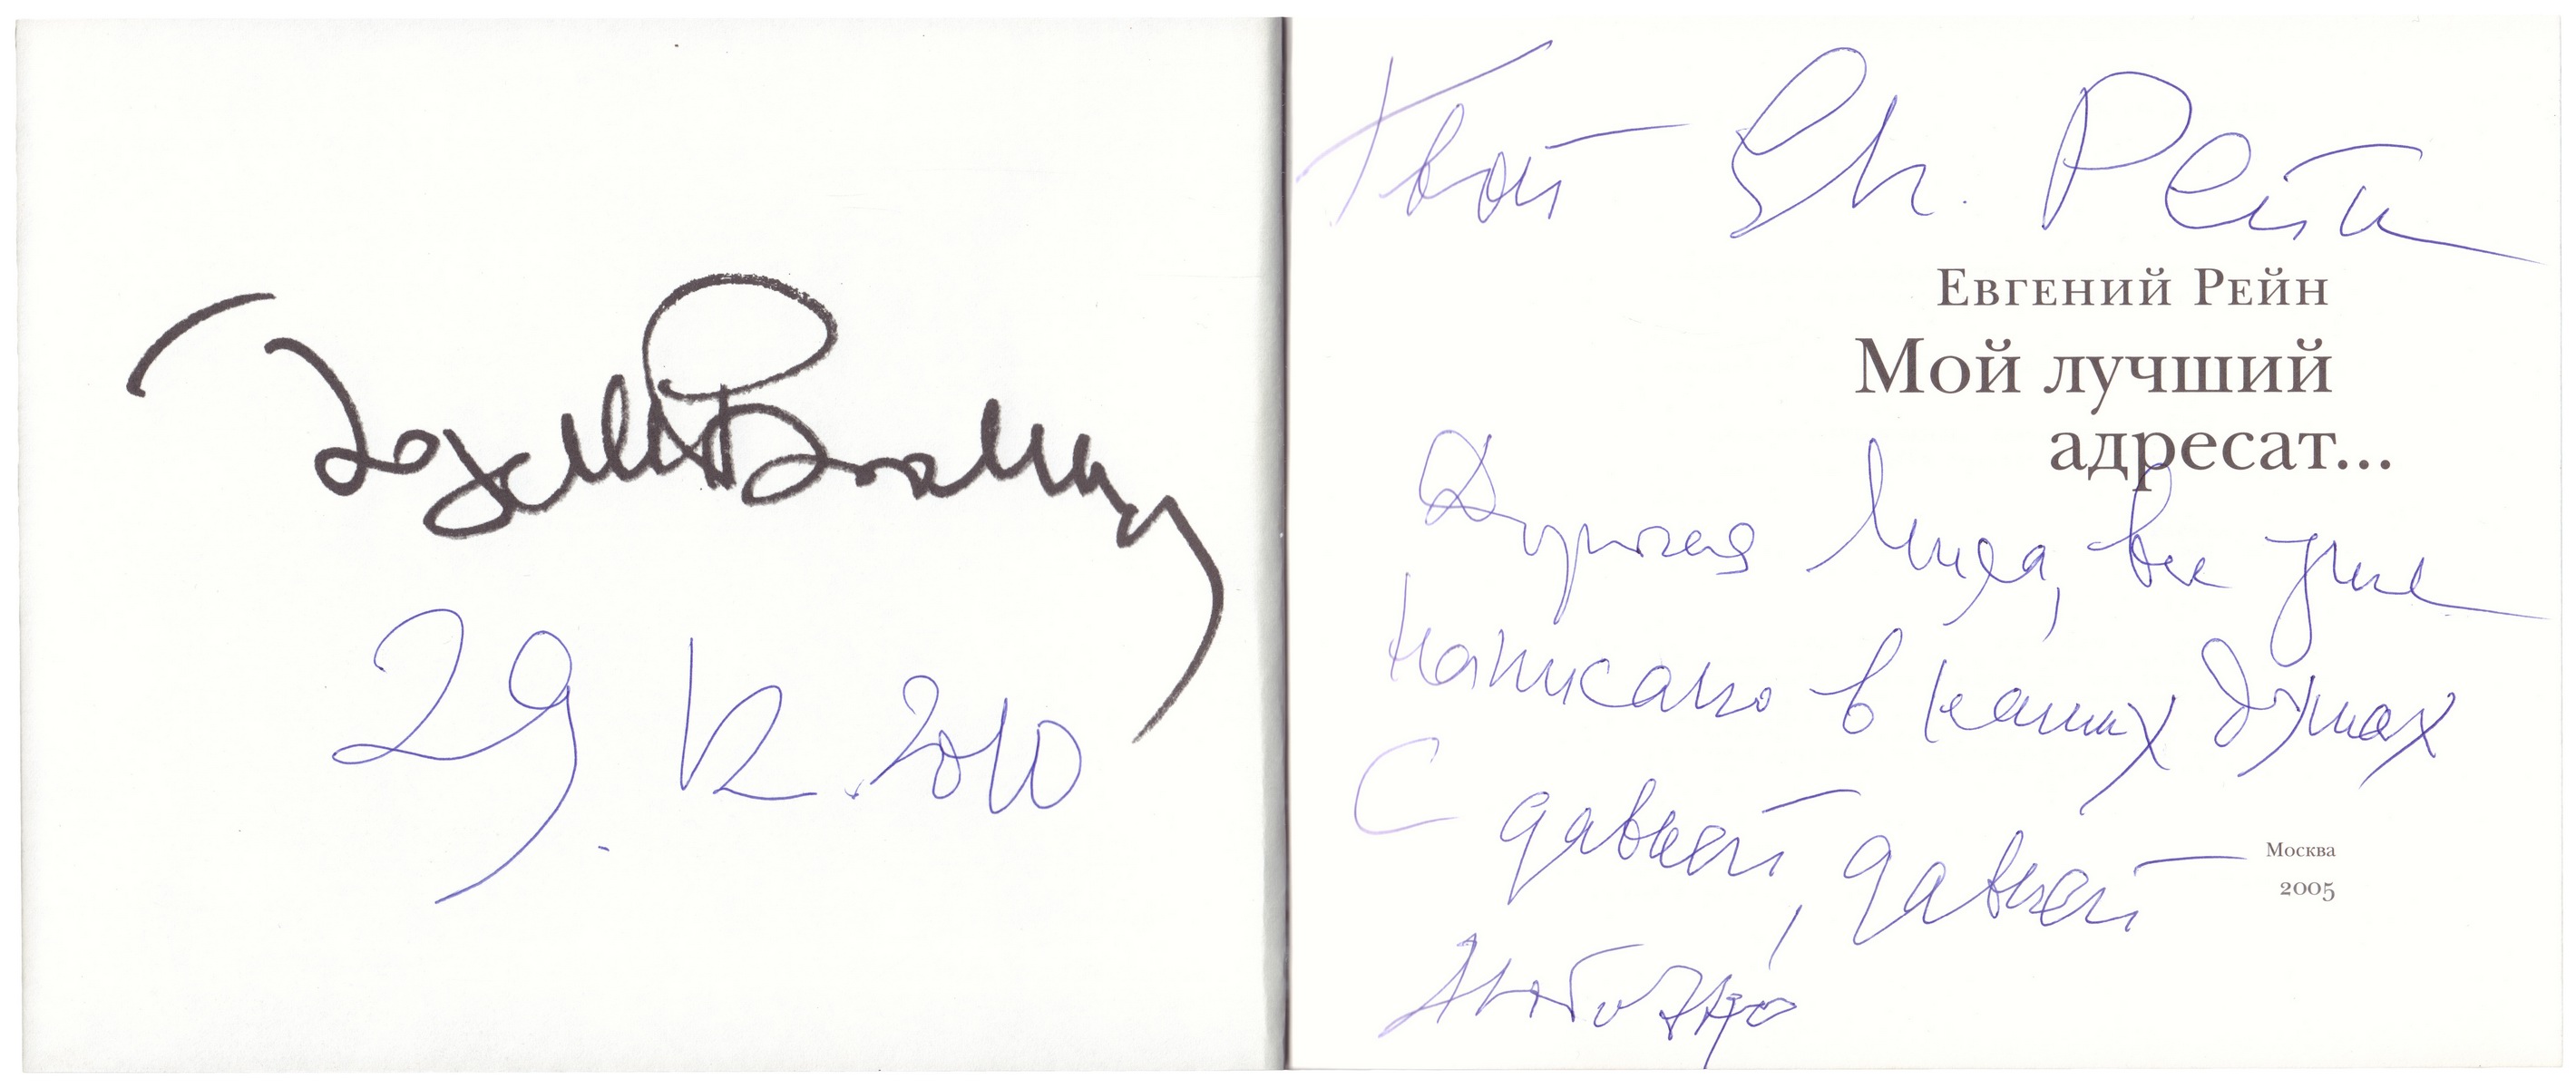 29. 12. 2010
Твой Ев. Рейн
Евгений Рейн
Мой лучший
адресат...
Дорогая Лида, все уже
написано в наших душах
С давней, давней
любовью
Москва
2005